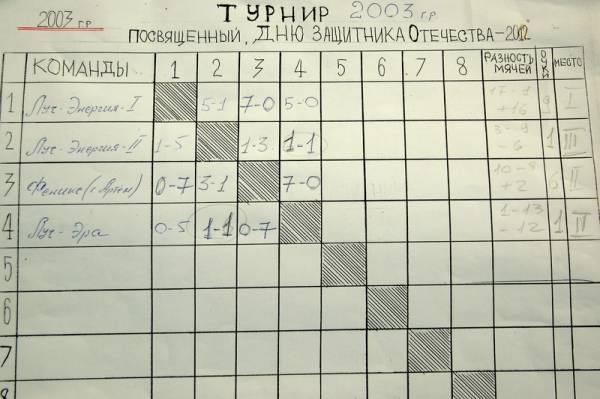 2003 г.р.
ТУРНИР 2003 г.р.
ПОСВЯЩЕННЫЙ, ДНЮ ЗАЩИТНИКА ОТЕЧЕСТВА-2012
КОМАНДЫ 1 2 3 4 5 6 7 8 РАЗНОСТЬ МЯЧЕЙ ОЧКИ МЕСТО
1 Луч-Энергия-I 5-1 7-0 5-0 17-1 +16 9 I
2 Луч-Энергия-II 1-5 1-3 1-1 3-9 -6 1 III
3 Феникс (г. Артем) 0-7 3-1 7-0 10-8 +2 6 II
4 Луч-Эра 0-5 1-1 0-7 1-13 -12 1 IV
5
6
7
8